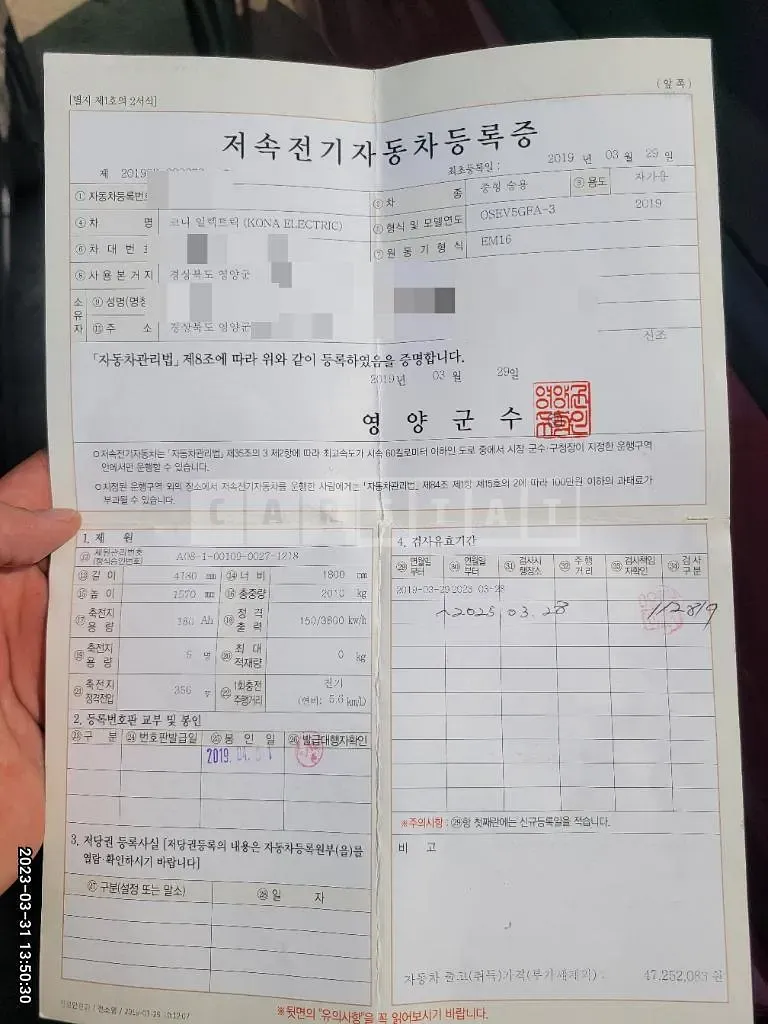 [별지 제1호의 2서식]
(앞쪽)
저속전기자동차등록증
제 2019
최초등록일 : 2019 년 03 월 29 일
① 자동차등록번호
② 차 종 중형 승용
③ 용도 자가용
④ 차 명 코나 일렉트릭 (KONA ELECTRIC)
⑤ 형식 및 모델연도 OSEV5GFA-3 2019
⑥ 차 대 번
⑦ 원 동 기 형 식 EM16
⑧ 사 용 본 거 지 경상북도 영양군
소유자
⑨ 성명(명칭
⑪ 주 소 경상북도 영양군
신조
「자동차관리법」 제8조에 따라 위와 같이 등록하였음을 증명합니다.
2019년 03 월 29일
영 양 군 수
○저속전기자동차는 「자동차관리법」 제35조의 3 제2항에 따라 최고속도가 시속 60킬로미터 이하인 도로 중에서 시장·군수·구청장이 지정한 운행구역
안에서만 운행할 수 있습니다.
○지정된 운행구역 외의 장소에서 저속전기자동차를 운행한 사람에게는 「자동차관리법」 제84조 제1항 제15호의 2에 따라 100만원 이하의 과태료가
부과될 수 있습니다.
CARSTAT
1. 제 원
⑫ 제원관리번호 (형식승인번호) A08-1-00109-0027-1218
⑬ 길 이 4180 mm ⑭ 너 비 1800 mm
⑮ 높 이 1570 mm ⑯ 총중량 2010 kg
⑰ 축전지 용 량 180 Ah ⑱ 정 격 출 력 150/3800 kw/h
⑲ 축전지 용 량 5 명 ⑳ 최 대 적재량 0 kg
㉑ 축전지 정격전압 356 v ㉒ 1회충전 주행거리 전기 (연비: 5.6 km/L)
2. 등록번호판 교부 및 봉인
㉓ 구 분 ㉔ 번호판발급일 ㉕ 봉 인 일 ㉖ 발급대행자확인
2019. 04. 01
3. 저당권 등록사실 [저당권등록의 내용은 자동차등록원부(을)를
열람·확인하시기 바랍니다]
㉗ 구분(설정 또는 말소) ㉘ 일 자
4. 검사유효기간
㉙ 연월일 부터 ㉚ 연월일 부터 ㉛ 검사시 행장소 ㉜ 주 행 거 리 ㉝ 검사책임 자확인 ㉞ 검 사 구 분
2019-03-29 2023-03-28
~2025. 03. 28 112819
※주의사항 : ㉙항 첫째란에는 신규등록일을 적습니다.
비 고
자동차 출고(취득)가격(부가세제외) : 47,252,083 원
※뒷면의 "유의사항"을 꼭 읽어보시기 바랍니다.
2023-03-31 13:50:30